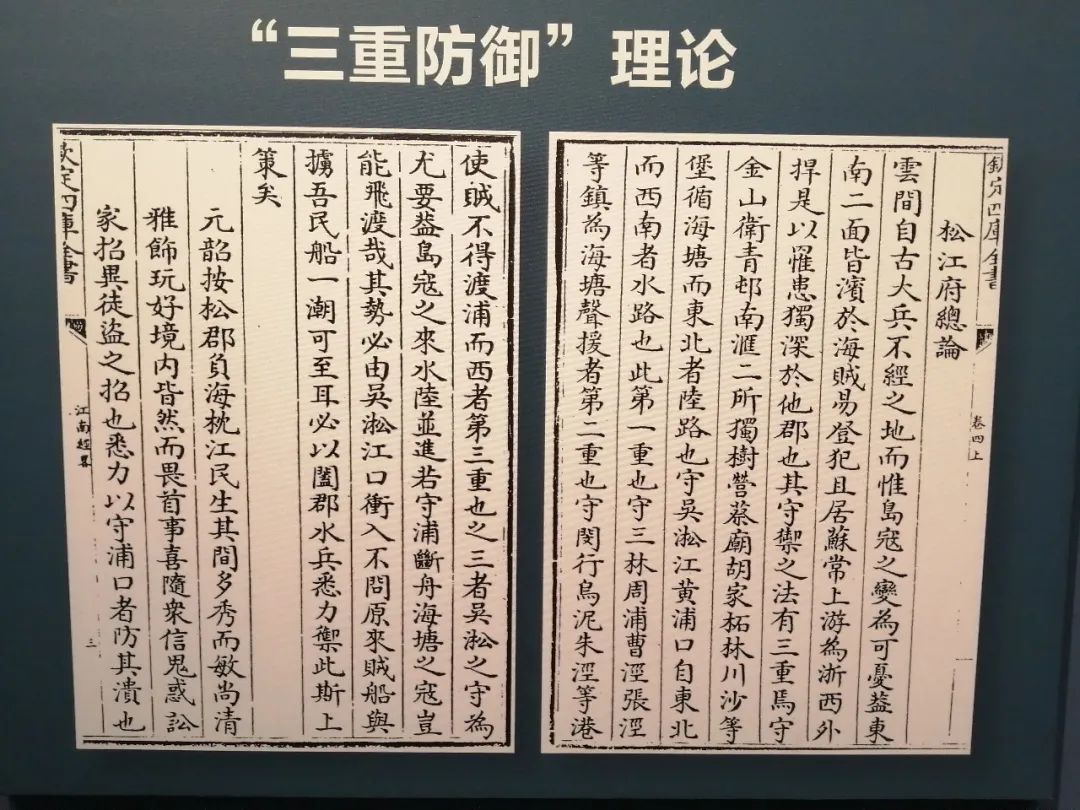 “三重防御”理论
欽定四庫全書
卷四上
松江府總論
雲間自古大兵不經之地而惟島寇之變為可憂蓋東
南二面皆濱於海賊易登犯且居蘇常上游為浙西外
捍是以罹患獨深於他郡也其守禦之法有三重焉守
金山衛青邨南滙二所獨樹營蔡廟胡家柘林川沙等
堡循海塘而東北者陸路也守吳淞江黃浦口自東北
而西南者水路也此第一重也守三林周浦曹涇張涇
等鎮為海塘聲援者第二重也守閔行烏泥朱涇等港
使賊不得渡浦而西者第三重也之三者吳淞之守為
尤要葢島寇之來水陸並進若守浦斷舟海塘之寇豈
能飛渡哉其勢必由吳淞江口衝入不問原來賊船與
擄吾民船一潮可至耳必以闔郡水兵悉力禦此斯上
策矣
元韶按松郡負海枕江民生其間多秀而敏尚清
雅飾玩好境内皆然而畏首事喜隨衆信鬼惑訟
家招異徒盜之招也悉力以守浦口者防其潰也
欽定四庫全書
江南經畧
三